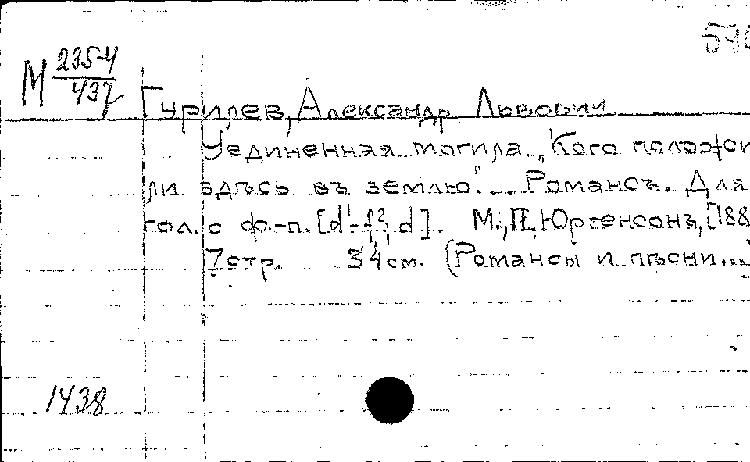 М 235-4
437
Гурилев, Александр Львович
Уединенная могила. „Кого положи
ли здѣсь въ землю". Романсъ. Для
гол. с ф.-п. [d¹-f², d]. М., П. Юргенсонъ, [188
7 стр. 34 см. (Романсы и пѣсни...
1438